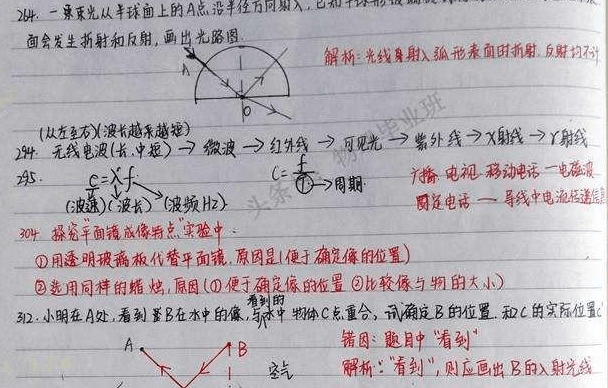 264. 一束束光从半球面上的A点沿半径方向射入,
面会发生折射和反射,画出光路图.
解析:光线身射入弧形表面时折射.反射均不计
A
O
(从左至右)(波长越来越短)
294. 无线电波(长.中.短) → 微波 → 红外线 → 可见光 → 紫外线 → X射线 → γ射线
295. c=λf
(波速)(波长)(波频HZ)
C= f T → 周期
广播.电视.移动电话一电磁波
固定电话 — 导线中电流传递信息
304 探究"平面镜成像特点"实验中:
①用透明玻璃板代替平面镜,原因是(便于确定像的位置)
②选用同样的蜡烛,原因(①便于确定像的位置 ②比较像与物的大小)
看到的
312. 小明在A处,看到B在水中的像,与水中物体C点重合,试确定B的位置.和C的实际位置C'
错因:题目中"看到"
解析:"看到",则应画出B的入射光线
A
B
空气
头条 物理毕业班